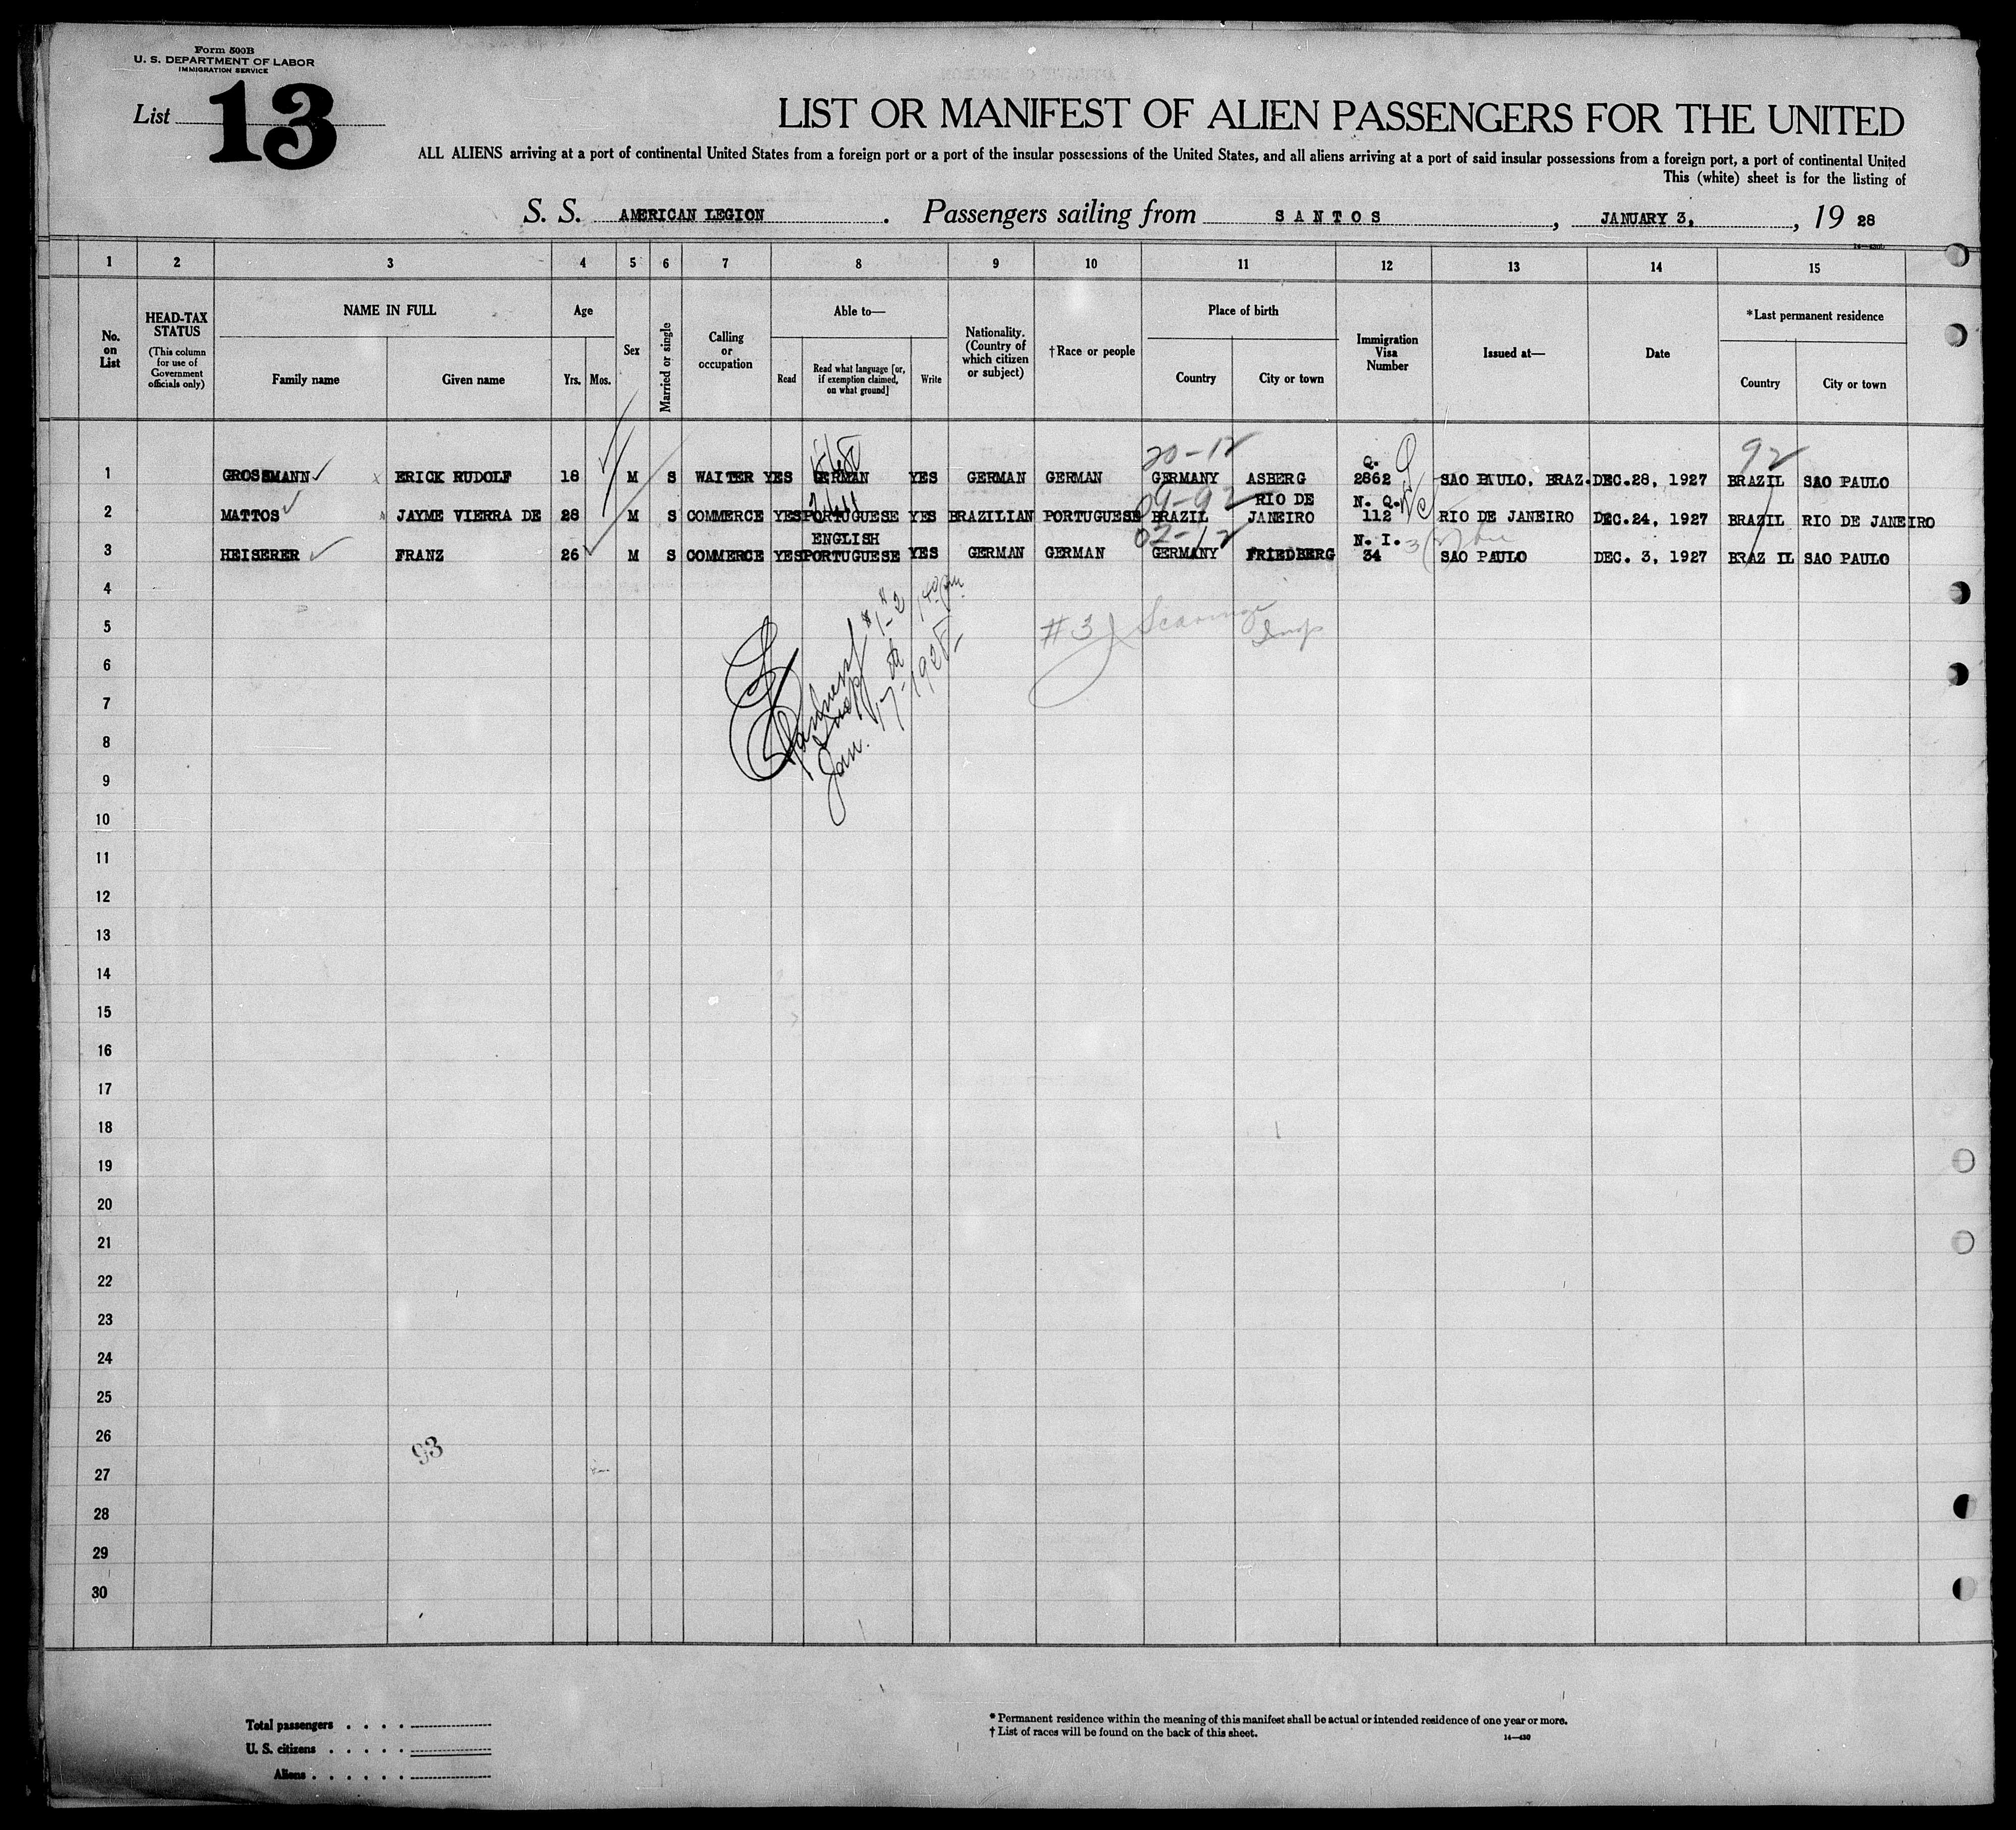 Form 500B
U. S. DEPARTMENT OF LABOR
IMMIGRATION SERVICE
List 13
LIST OR MANIFEST OF ALIEN PASSENGERS FOR THE UNITED
ALL ALIENS arriving at a port of continental United States from a foreign port or a port of the insular possessions of the United States, and all aliens arriving at a port of said insular possessions from a foreign port, a port of continental United
This (white) sheet is for the listing of
S. S. AMERICAN LEGION . Passengers sailing from SANTOS , JANUARY 3, , 19 28
1 2 3 4 5 6 7 8 9 10 11 12 13 14 15
No. on List
HEAD-TAX STATUS
(This column for use of Government officials only)
NAME IN FULL
Family name Given name
Age
Yrs. Mos.
Sex
Married or single
Calling or occupation
Able to—
Read
Read what language [or, if exemption claimed, on what ground]
Write
Nationality. (Country of which citizen or subject)
†Race or people
Place of birth
Country City or town
Immigration Visa Number
Issued at—
Date
*Last permanent residence
Country City or town
20-12 Q. 92
1 GROSSMANN ERICK RUDOLF 18 M S WAITER YES GERMAN YES GERMAN GERMAN GERMANY ASBERG 2862 SAO PAULO, BRAZ. DEC.28, 1927 BRAZIL SAO PAULO
RIO DE N. Q.
2 MATTOS JAYME VIERRA DE 28 M S COMMERCE YES PORTUGUESE YES BRAZILIAN PORTUGUESE BRAZIL JANEIRO 112 RIO DE JANEIRO DEC.24, 1927 BRAZIL RIO DE JANEIRO
ENGLISH N. I.
3 HEISERER FRANZ 26 M S COMMERCE YES PORTUGUESE YES GERMAN GERMAN GERMANY FRIEDBERG 34 SAO PAULO DEC. 3, 1927 BRAZ IL SAO PAULO
4
5
6
7
8
9
10
11
12
13
14
15
16
17
18
19
20
21
22
23
24
25
26
27
28
29
30
#1-2
Insp
Jan. 17 - 1928
#3
Insp
93
Total passengers . . . .
U. S. citizens . . . . .
Aliens . . . . . .
* Permanent residence within the meaning of this manifest shall be actual or intended residence of one year or more.
† List of races will be found on the back of this sheet.
14—430